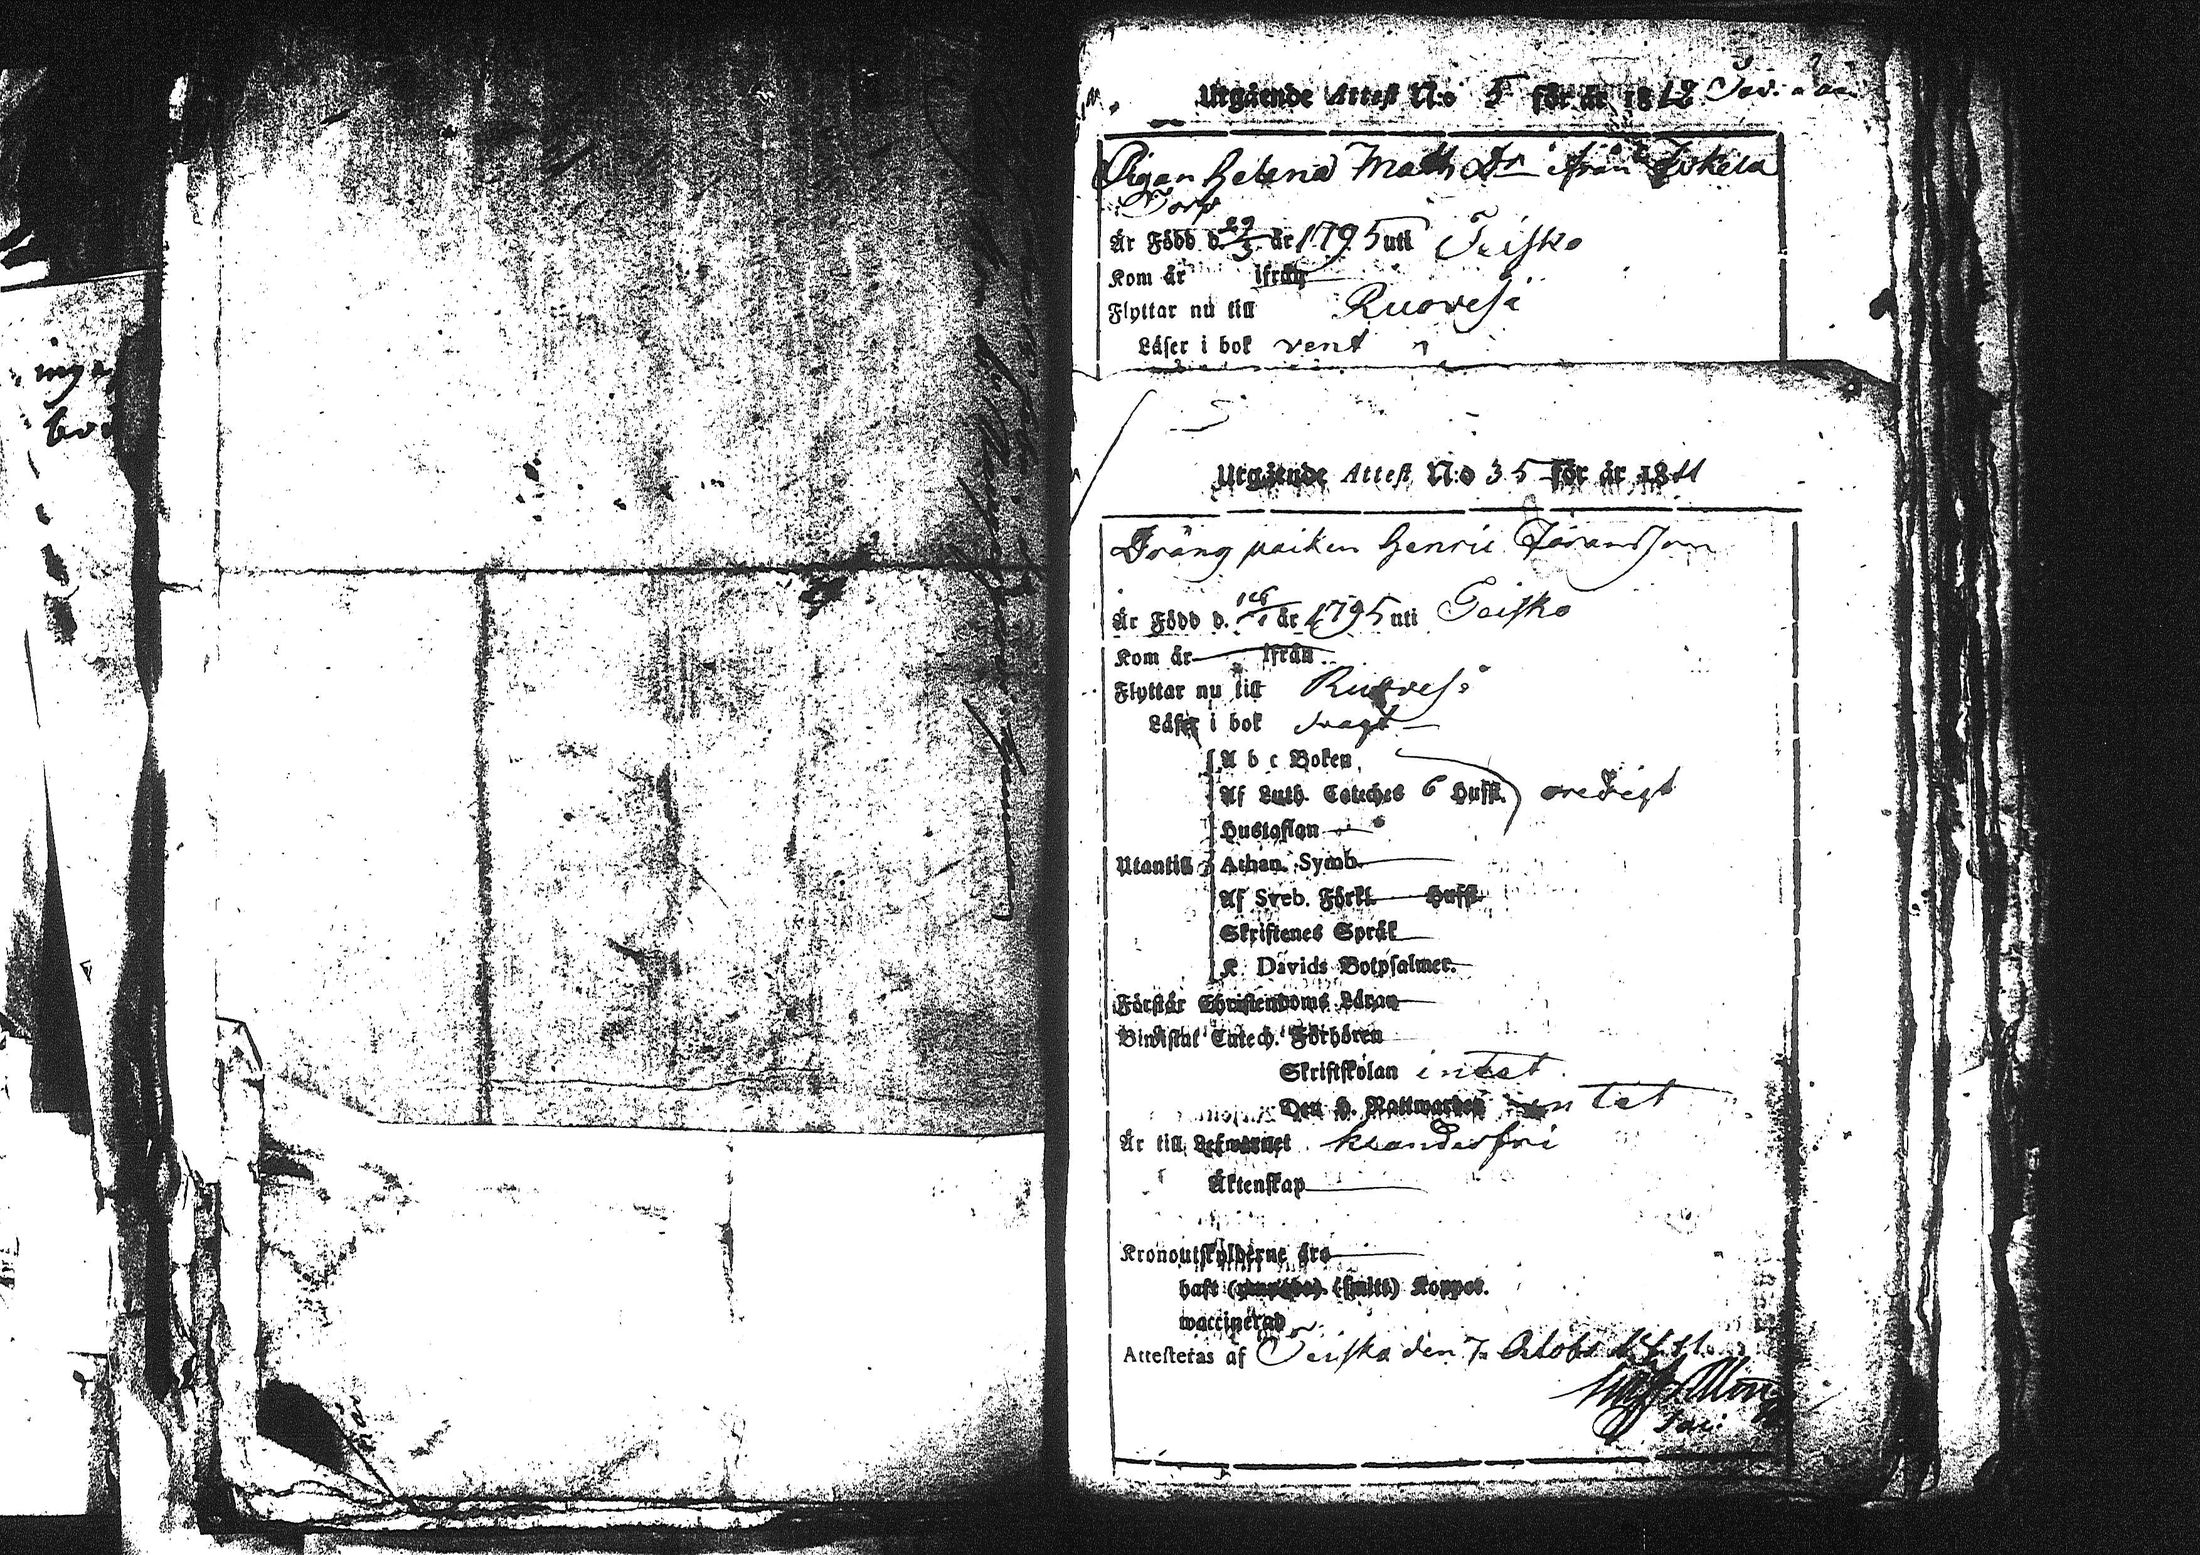 Utgående Attest N:o 5 för år 1812
Pigan Helena Matth Dr ifrån Jokela
Torp
Är Född d. 29/3 år 1795 uti Teisko
Kom år ifrån
Flyttar nu till Ruovesi
Läser i bok rent
Utgående Attest N:o 35 för år 1811
Dräng poiken Henric
Är Född d. år 1795 uti Teisko
Kom år ifrån
Flyttar nu till Ruovesi
Läser i bok svagt
A b c Boken
Af Luth. Cateches 6 Hufst. oredigt
Hustaflan
Utantill Athan. Symb.
Af Sveb. Förkl. Hufst.
Skriftenes Språk
K. Davids Botpsalmer.
Förstår Christendoms Läran
Biwistat Catech. Förhören
Skriftskolan intet
Den H. Nattwarden intet
Är till Lefwernet klanderfri
Äktenskap
Kronoutskylderne äro
haft (smitt) Koppor.
waccinerad
Attesteras af Teisko den 7 Octobr 1811